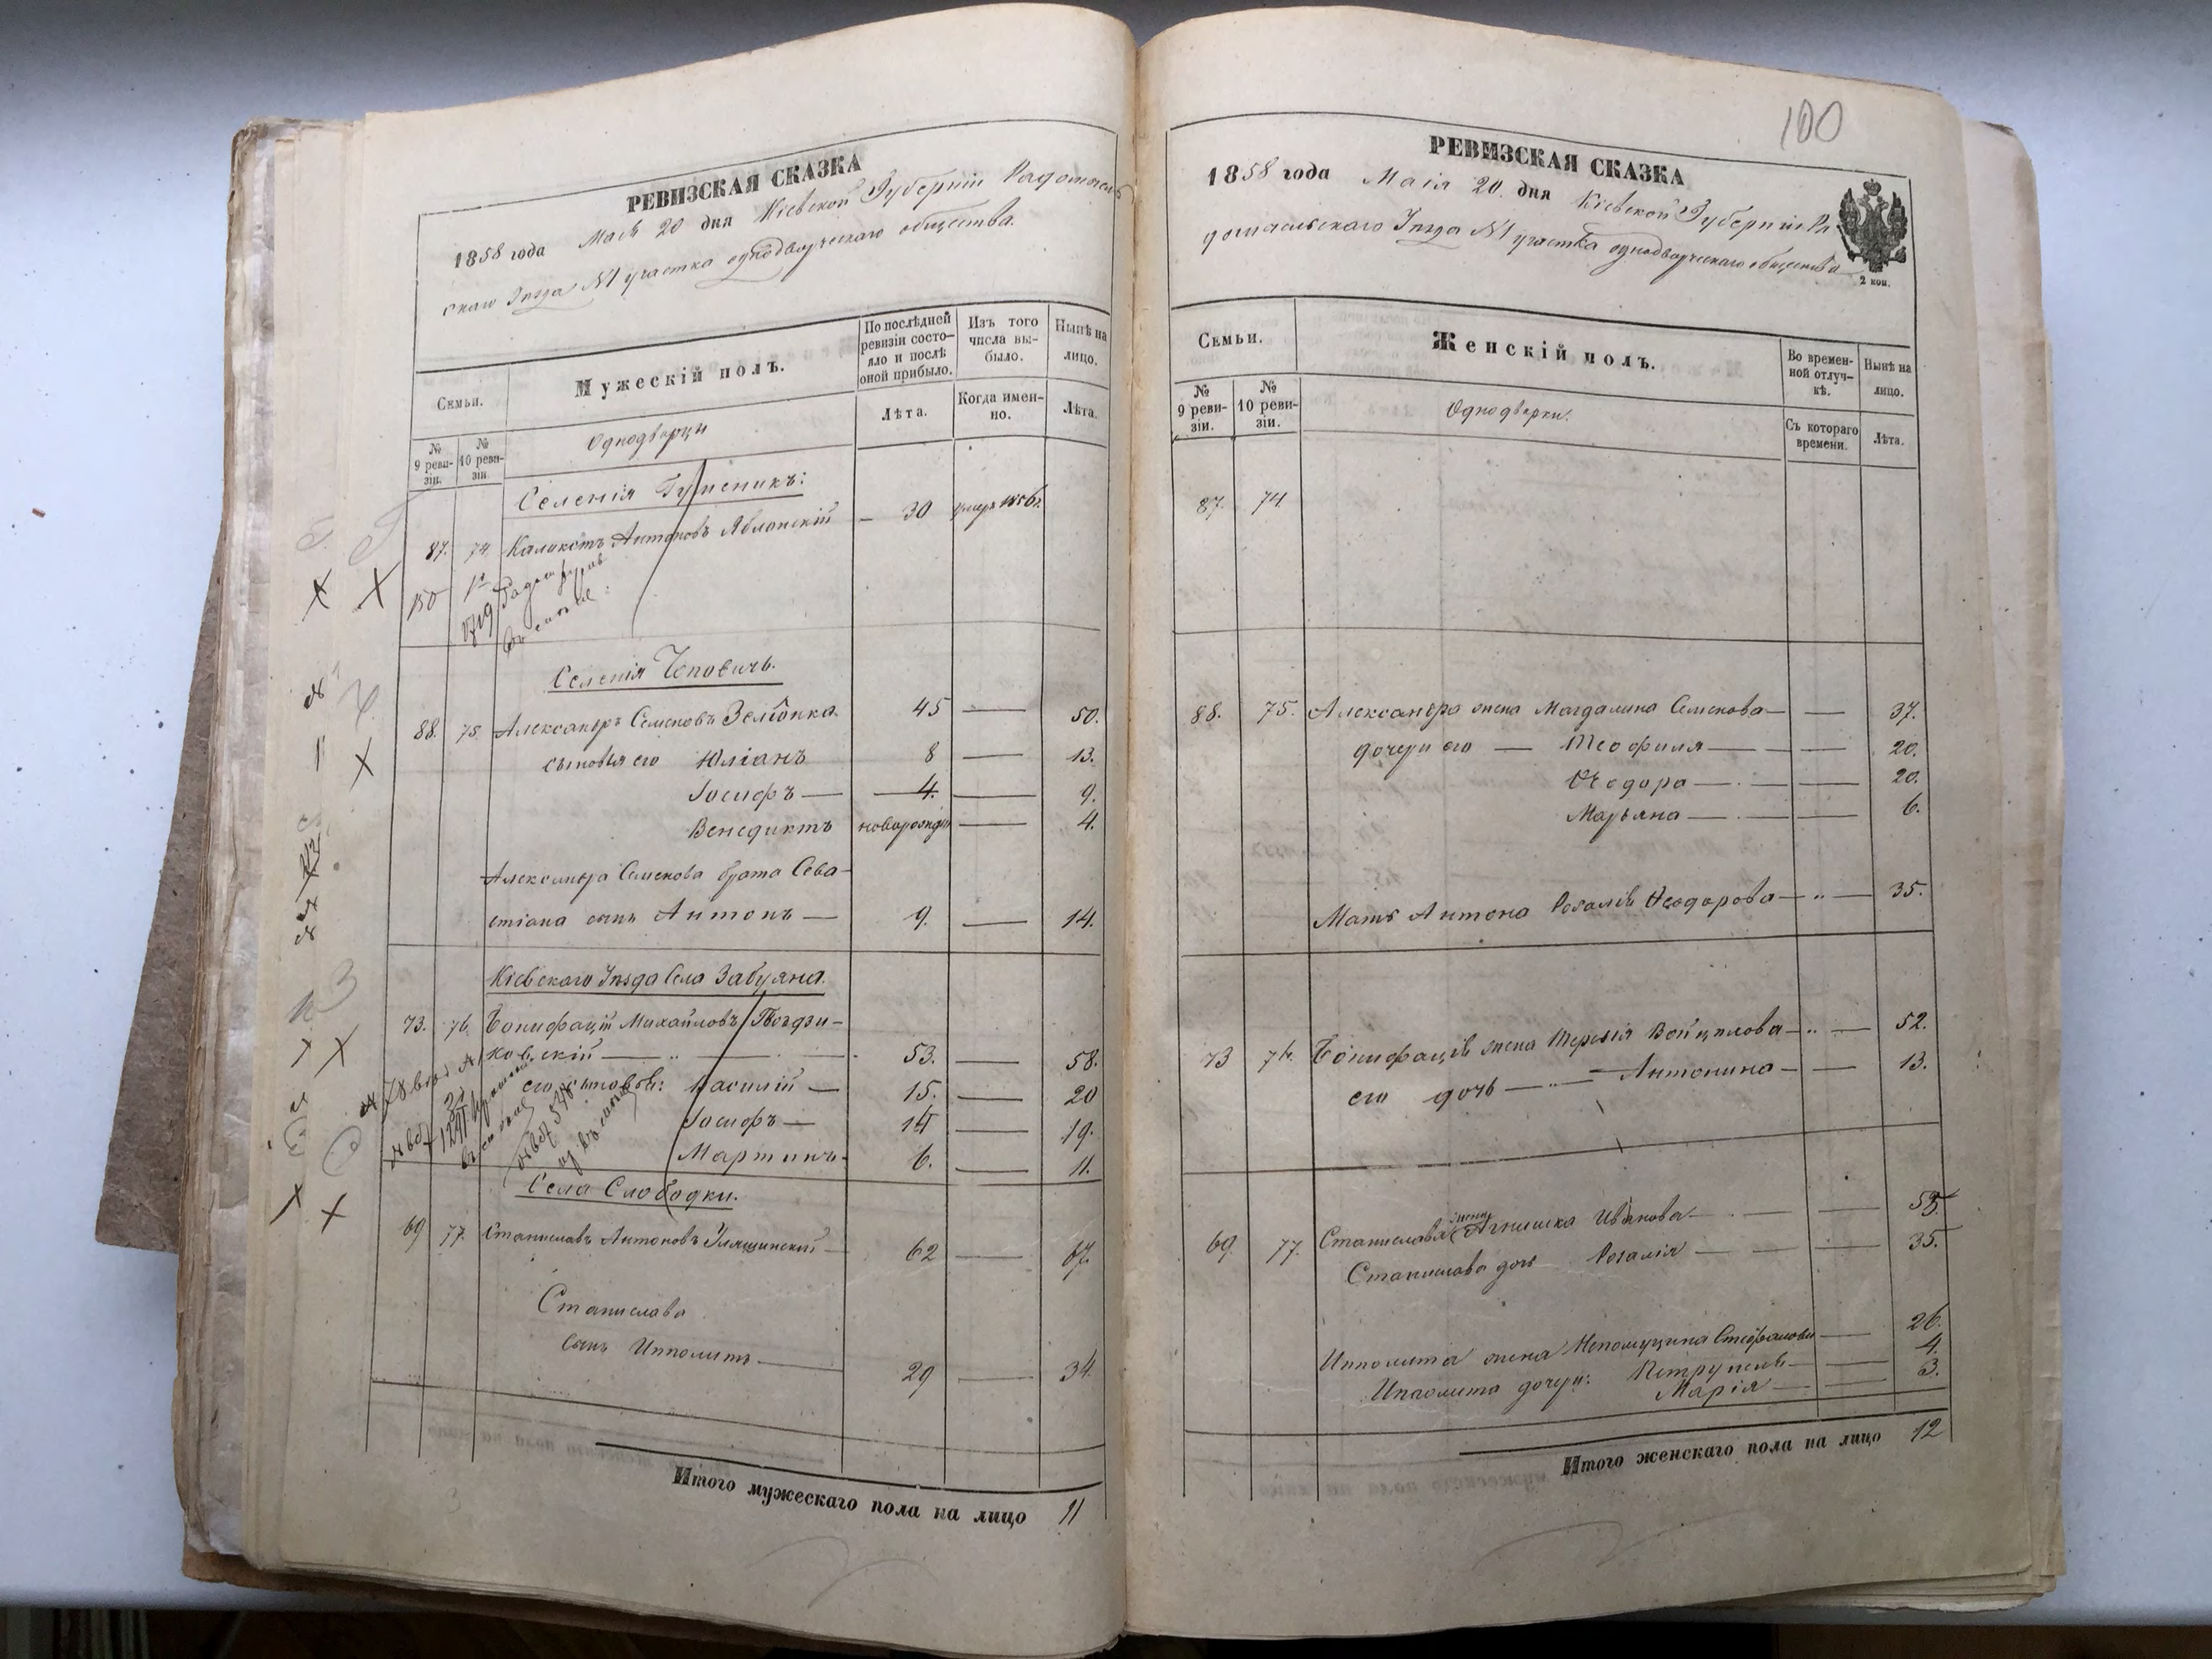 РЕВИЗСКАЯ СКАЗКА
1858 года Маія 20 дня Кіевской Губерніи Радомысль
скаго Уѣзда №1 участка однодворческаго общества.
Семьи.
Мужескій полъ.
По послѣдней ревизіи состо-
яло и послѣ
оной прибыло.
Изъ того
числа вы-
было.
Нынѣ на
лицо.
№
9 реви-
зіи.
№
10 реви-
зіи.
Однодворци
Лѣта.
Когда имен-
но.
Лѣта.
Селенія
87. 74 Каликстъ Антоновъ Яблонскій — 30 умеръ
150
Селенія Чеповичь.
88. 75. Александръ Семеновъ Зеліонка. 45 — 50.
сыновья его Юліанъ 8 — 13.
Іосифъ — 4. — 9.
Венедиктъ новорожден — 4.
Александра Семенова брата Сева-
стіана сынъ Антонъ — 9. — 14.
Кіевскаго Уѣзда Села Забуяна.
73. 76. Бонифацій Михайловъ Гвоздзи-
ковскій — 53. — 58.
его сыновья: Василій — 15. — 20
Іосифъ — 14 — 19.
Мартинъ — 6. — 11.
Села Слободки.
69 77. Станиславъ Антоновъ — 62 — 67.
Станислава
сынъ Ипполитъ — 29 — 34.
Итого мужескаго пола на лицо 11
100
РЕВИЗСКАЯ СКАЗКА
1858 года Маія 20 дня Кіевской Губерніи Ра
домысльскаго Уѣзда №1 участка однодворческаго общества
2 коп.
Семьи.
Женскій полъ.
Во времен-
ной отлуч-
кѣ.
Нынѣ на
лицо.
№
9 реви-
зіи.
№
10 реви-
зіи.
Однодворки.
Съ котораго
времени.
Лѣта.
87. 74
88. 75. Александра жена Магдалина Семенова — — 37.
дочери его — Теофиля — — 20.
Ѳеодора — — 20.
Марьяна — — 6.
Мать Антона Розалія Ѳеодорова — „ — 35.
73 76. Бонифація жена Терезія Войцѣхова — „ — 52.
его дочь — Антонина — — 13.
69. 77. Станислава жена Агнишка Иванова — —
Станислава дочь Розалія — — 35.
Ипполита жена Непомуцина Стефанова — 26.
Ипполита дочери: — 4.
Марія — — 3.
Итого женскаго пола на лицо 12